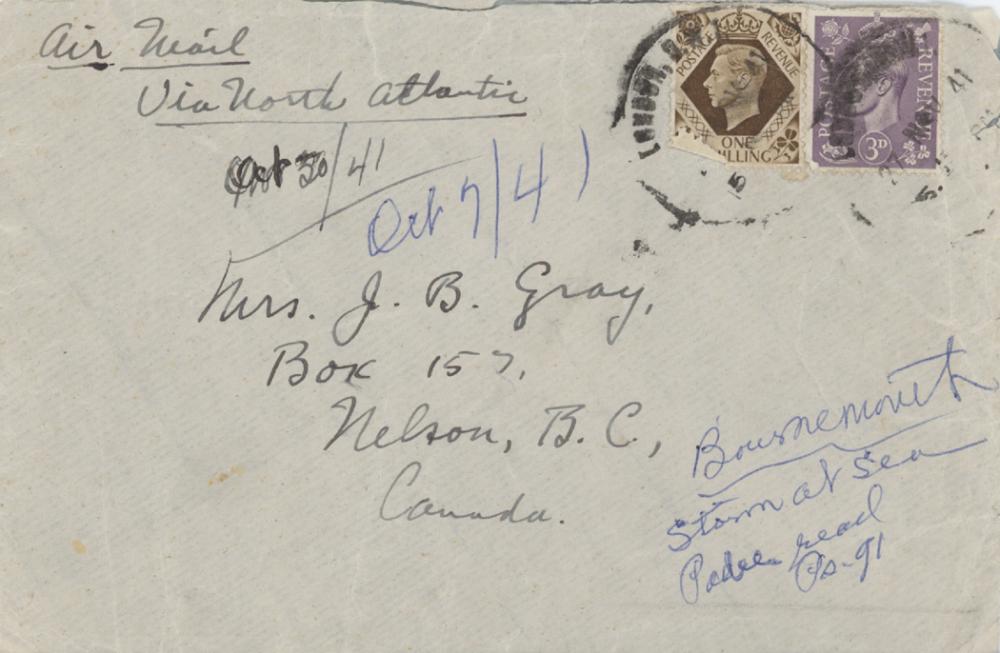 Air Mail
Via North Atlantic
Oct 30/41
Oct 7/41
POSTAGE REVENUE
ONE
ILLING
POSTAGE REVENUE
3D
LONDON,
41
5
Mrs. J. B. Gray,
Box 157,
Nelson, B.C.,
Canada.
Bournemouth
Storm at Sea
Padre read
Ps-91